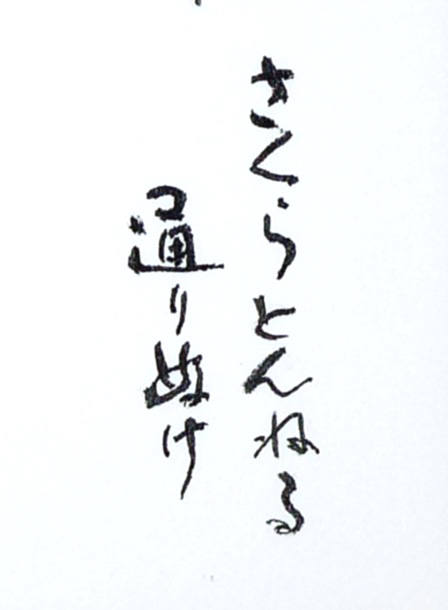 さくらとんねる
通りぬけ